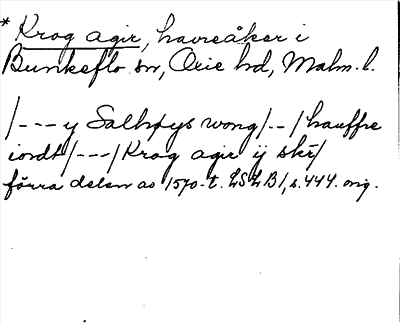 * Krog agir, havreåker i
Bunkeflo sn, Oxie hd, Malm. l.
/--- y Salhøys wong /--/ hauffre
iordt /---/ Krog agir ij skr/
förra delen av 1570-t. LSLB1, s. 444. orig.